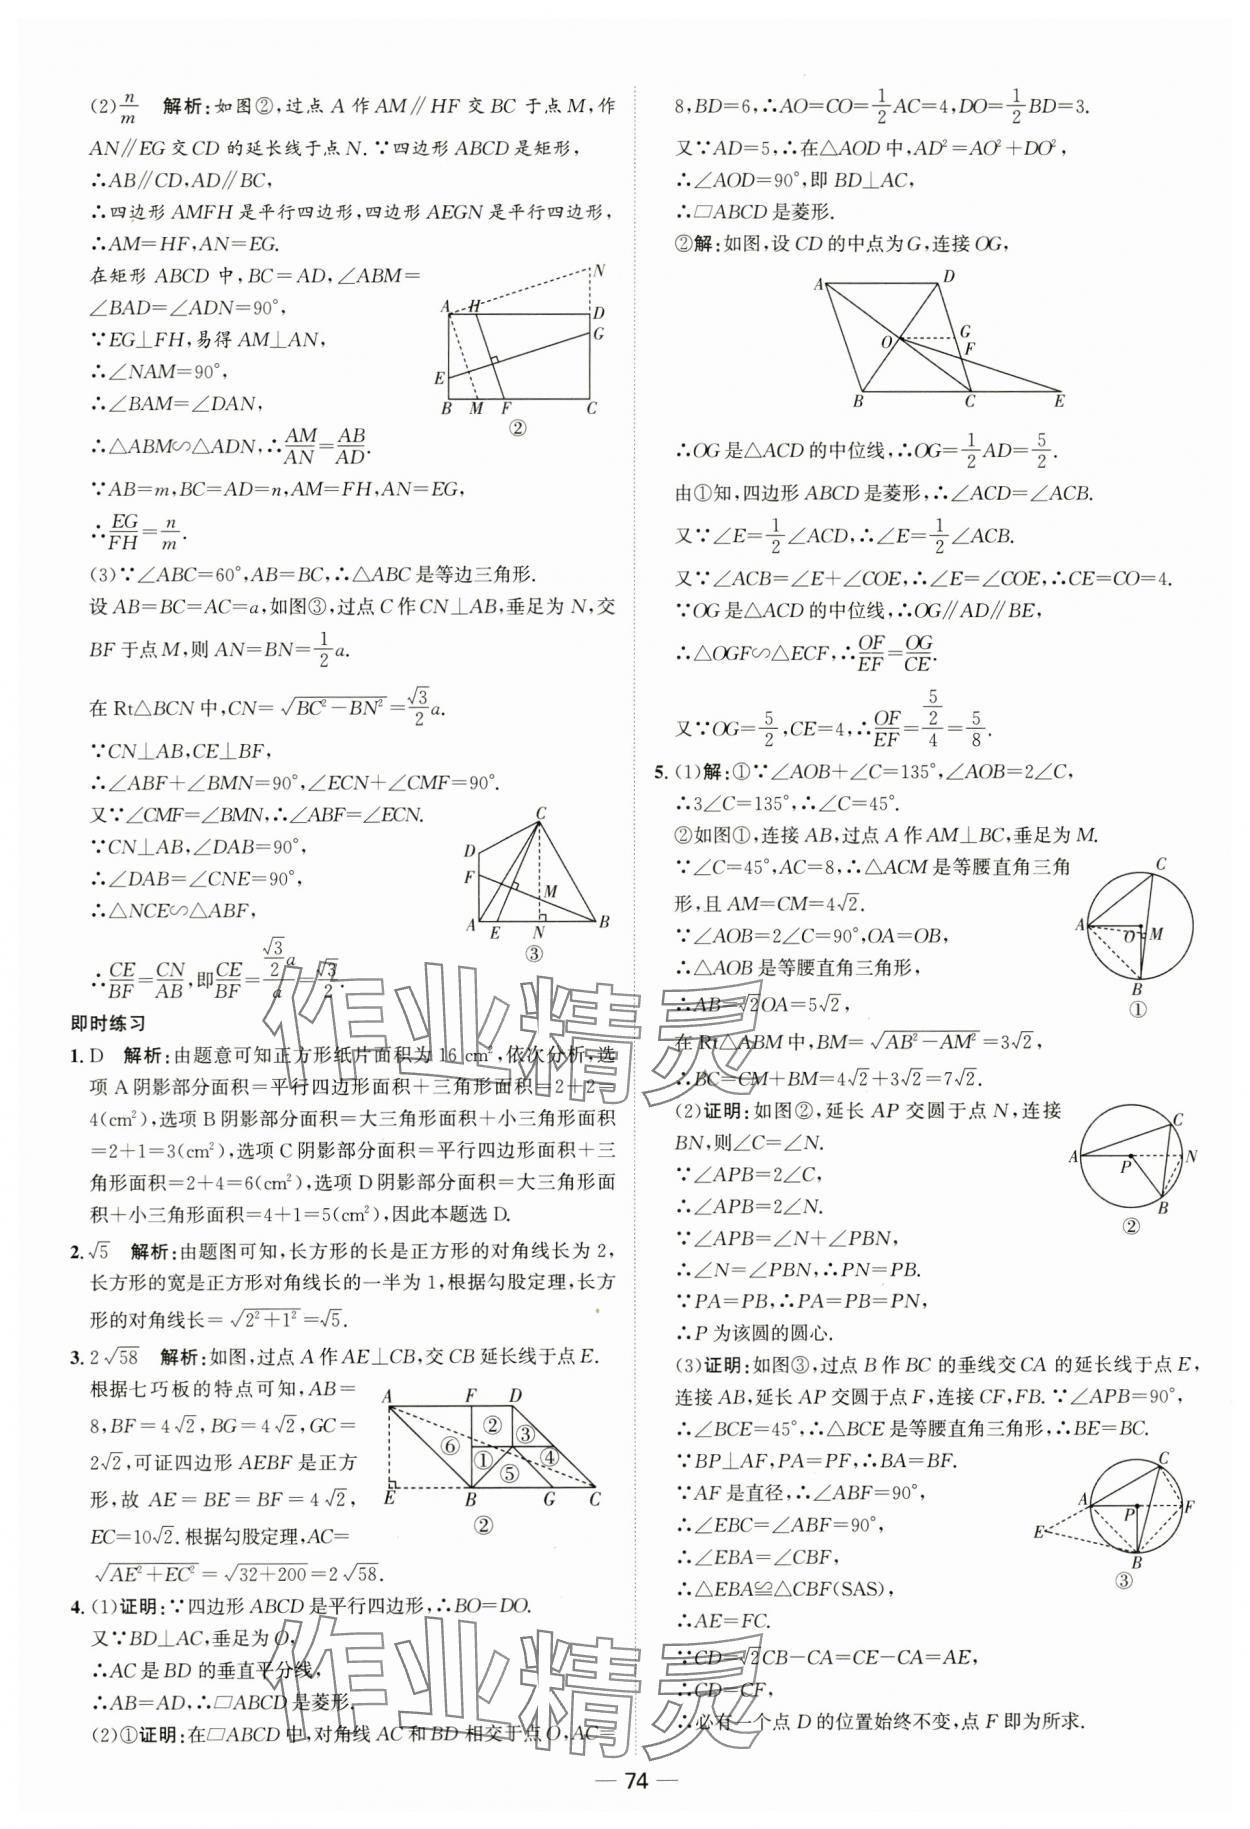 (2)n/m 解析:如图②,过点 A 作 AM∥HF 交 BC 于点 M,作
AN∥EG 交 CD 的延长线于点 N. ∵四边形 ABCD 是矩形,
∴AB∥CD,AD∥BC,
∴四边形 AMFH 是平行四边形,四边形 AEGN 是平行四边形,
∴AM=HF,AN=EG.
在矩形 ABCD 中,BC=AD,∠ABM=
∠BAD=∠ADN=90°,
∵EG⊥FH,易得 AM⊥AN,
∴∠NAM=90°,
∴∠BAM=∠DAN,
∴△ABM∽△ADN,∴AM/AN=AB/AD.
∵AB=m,BC=AD=n,AM=FH,AN=EG,
∴EG/FH=n/m.
N
A H D
G
E
B M F C
②
(3)∵∠ABC=60°,AB=BC,∴△ABC 是等边三角形.
设 AB=BC=AC=a,如图③,过点 C 作 CN⊥AB,垂足为 N,交
BF 于点 M,则 AN=BN=1/2 a.
在 Rt△BCN 中,CN=√(BC²-BN²)=√3/2 a.
∵CN⊥AB,CE⊥BF,
∴∠ABF+∠BMN=90°,∠ECN+∠CMF=90°.
又∵∠CMF=∠BMN,∴∠ABF=∠ECN.
∵CN⊥AB,∠DAB=90°,
∴∠DAB=∠CNE=90°,
∴△NCE∽△ABF,
∴CE/BF=CN/AB,即CE/BF=(√3/2 a)/a=√3/2.
C
D
F
M
A E N B
③
即时练习
1. D 解析:由题意可知正方形纸片面积为 16 cm²,依次分析,选
项 A 阴影部分面积=平行四边形面积+三角形面积=2+2=
4(cm²),选项 B 阴影部分面积=大三角形面积+小三角形面积
=2+1=3(cm²),选项 C 阴影部分面积=平行四边形面积+三
角形面积=2+4=6(cm²),选项 D 阴影部分面积=大三角形面
积+小三角形面积=4+1=5(cm²),因此本题选 D.
2. √5 解析:由题图可知,长方形的长是正方形的对角线长为 2,
长方形的宽是正方形对角线长的一半为 1,根据勾股定理,长方
形的对角线长=√(2²+1²)=√5.
3. 2√58 解析:如图,过点 A 作 AE⊥CB,交 CB 延长线于点 E.
根据七巧板的特点可知,AB=
8,BF=4√2,BG=4√2,GC=
2√2,可证四边形 AEBF 是正方
形,故 AE=BE=BF=4√2,
EC=10√2.根据勾股定理,AC=
√(AE²+EC²)=√(32+200)=2√58.
A F D
② ③
⑥ ① ④
⑤
E B G C
②
4. (1)证明:∵四边形 ABCD 是平行四边形,∴BO=DO.
又∵BD⊥AC,垂足为 O,
∴AC 是 BD 的垂直平分线,
∴AB=AD,∴□ABCD 是菱形.
(2)①证明:在□ABCD 中,对角线 AC 和 BD 相交于点 O,AC=
8,BD=6,∴AO=CO=1/2 AC=4,DO=1/2 BD=3.
又∵AD=5,∴在△AOD 中,AD²=AO²+DO²,
∴∠AOD=90°,即 BD⊥AC,
∴□ABCD 是菱形.
②解:如图,设 CD 的中点为 G,连接 OG,
A D
O G
F
B C E
∴OG 是△ACD 的中位线,∴OG=1/2 AD=5/2.
由①知,四边形 ABCD 是菱形,∴∠ACD=∠ACB.
又∵∠E=1/2∠ACD,∴∠E=1/2∠ACB.
又∵∠ACB=∠E+∠COE,∴∠E=∠COE,∴CE=CO=4.
∵OG 是△ACD 的中位线,∴OG∥AD∥BE,
∴△OGF∽△ECF,∴OF/EF=OG/CE.
又∵OG=5/2,CE=4,∴OF/EF=(5/2)/4=5/8.
5. (1)解:①∵∠AOB+∠C=135°,∠AOB=2∠C,
∴3∠C=135°,∴∠C=45°.
②如图①,连接 AB,过点 A 作 AM⊥BC,垂足为 M.
∵∠C=45°,AC=8,∴△ACM 是等腰直角三角
形,且 AM=CM=4√2.
∵∠AOB=2∠C=90°,OA=OB,
∴△AOB 是等腰直角三角形,
∴AB=√2OA=5√2,
在 Rt△ABM 中,BM=√(AB²-AM²)=3√2,
∴BC=CM+BM=4√2+3√2=7√2.
C
A
O M
B
①
(2)证明:如图②,延长 AP 交圆于点 N,连接
BN,则∠C=∠N.
∵∠APB=2∠C,
∴∠APB=2∠N.
∵∠APB=∠N+∠PBN,
∴∠N=∠PBN,∴PN=PB.
∵PA=PB,∴PA=PB=PN,
∴P 为该圆的圆心.
C
A P N
B
②
(3)证明:如图③,过点 B 作 BC 的垂线交 CA 的延长线于点 E,
连接 AB,延长 AP 交圆于点 F,连接 CF,FB. ∵∠APB=90°,
∴∠BCE=45°,∴△BCE 是等腰直角三角形,∴BE=BC.
∵BP⊥AF,PA=PF,∴BA=BF.
∵AF 是直径,∴∠ABF=90°,
∴∠EBC=∠ABF=90°,
∴∠EBA=∠CBF,
∴△EBA≌△CBF(SAS),
∴AE=FC.
∵CD=√2CB-CA=CE-CA=AE,
∴CD=CF,
∴必有一个点 D 的位置始终不变,点 F 即为所求.
C
A P F
E
B
③
作业精灵
作业精灵
— 74 —